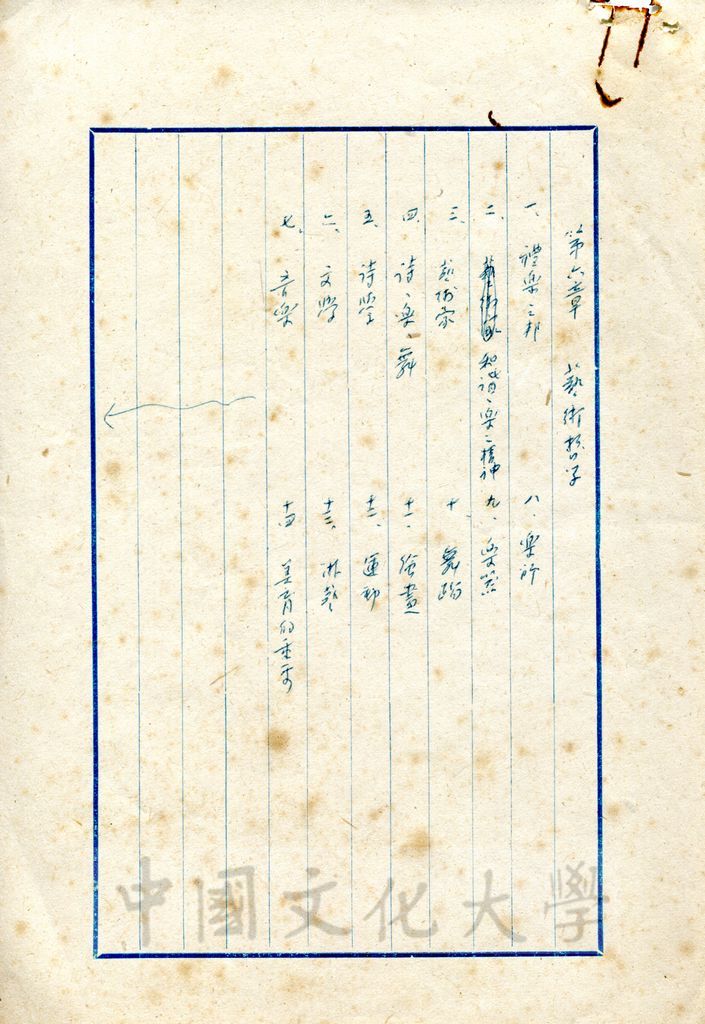 第六章　藝術哲学
一、禮樂之邦
二、和諧、樂之精神
三、藝術家
四、詩、樂、舞
五、詩學
六、文學
七、音樂
八、樂
九、樂器
十、舞蹈
十一、繪畫
十二、運動
十三、
十四、美育的重要
中國文化大學